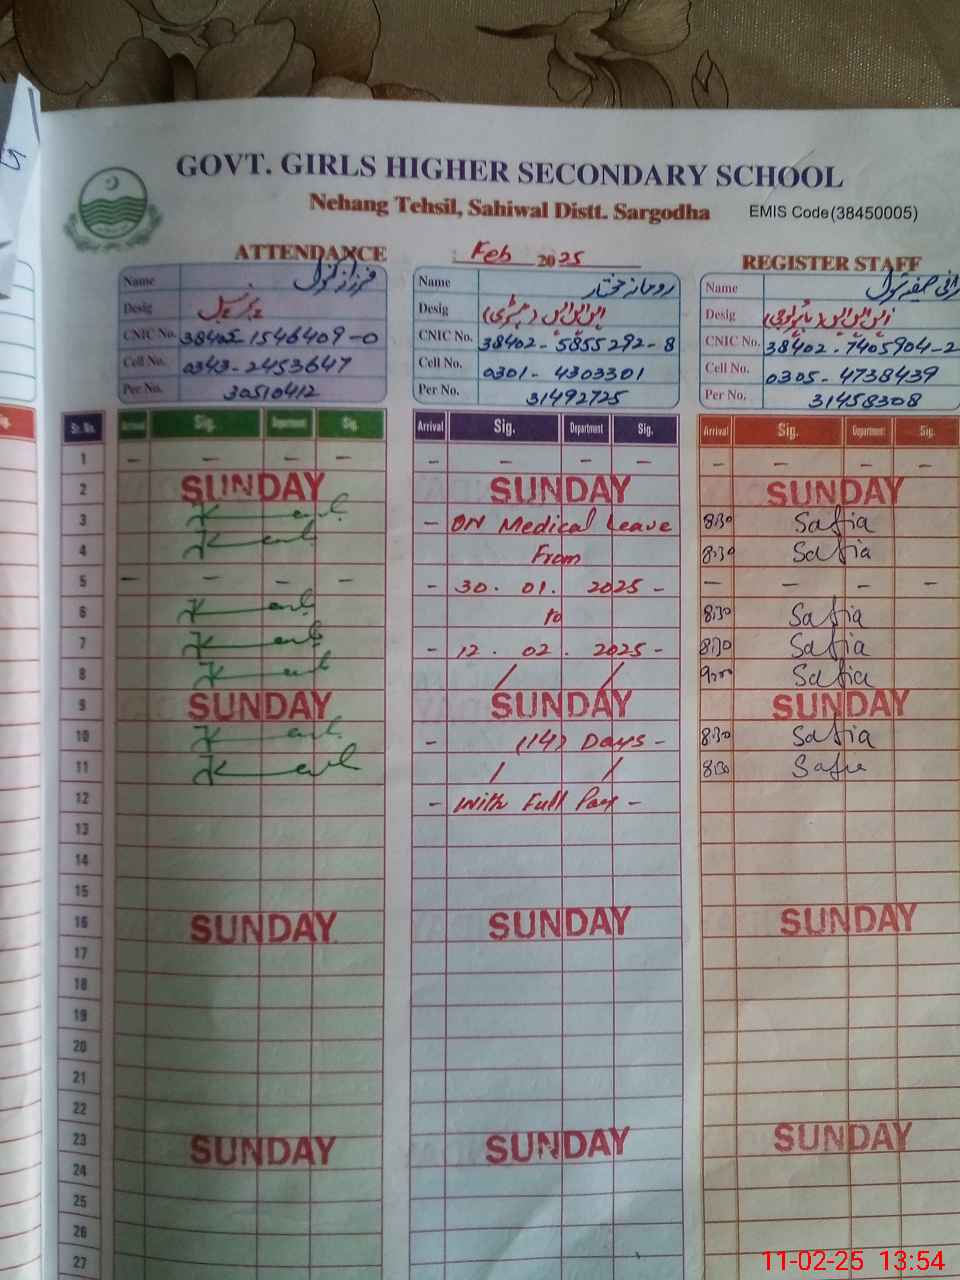 GOVT. GIRLS HIGHER SECONDARY SCHOOL
Nehang Tehsil, Sahiwal Distt. Sargodha EMIS Code(38450005)
ATTENDANCE Feb 2025 REGISTER STAFF
Name Name روحانہ مختار Name
Desig پرنسپل Desig Desig
CNIC No. 38402-1546409-0 CNIC No. 38402-5855292-8 CNIC No. 38402-7405904-2
Cell No. 0343-2453647 Cell No. 0301-4303301 Cell No. 0305-4738439
Per No. 30510412 Per No. 31492725 Per No. 31458308
Sr. No. Arrival Sig. Department Sig. Arrival Sig. Department Sig. Arrival Sig. Department Sig.
1 - - - - - - - - - - - -
2 SUNDAY SUNDAY SUNDAY
3 - ON Medical Leave 8:30 Safia
4 From 8:30 Safia
5 - - - - - 30.01.2025 - - - - -
6 to 8:30 Safia
7 - 12.02.2025 - 8:30 Safia
8 / / 9:00 Safia
9 SUNDAY SUNDAY SUNDAY
10 - (14) Days - 8:30 Safia
11 / / 8:30 Safia
12 - With Full Pay -
13
14
15
16 SUNDAY SUNDAY SUNDAY
17
18
19
20
21
22
23 SUNDAY SUNDAY SUNDAY
24
25
26
27
11-02-25 13:54